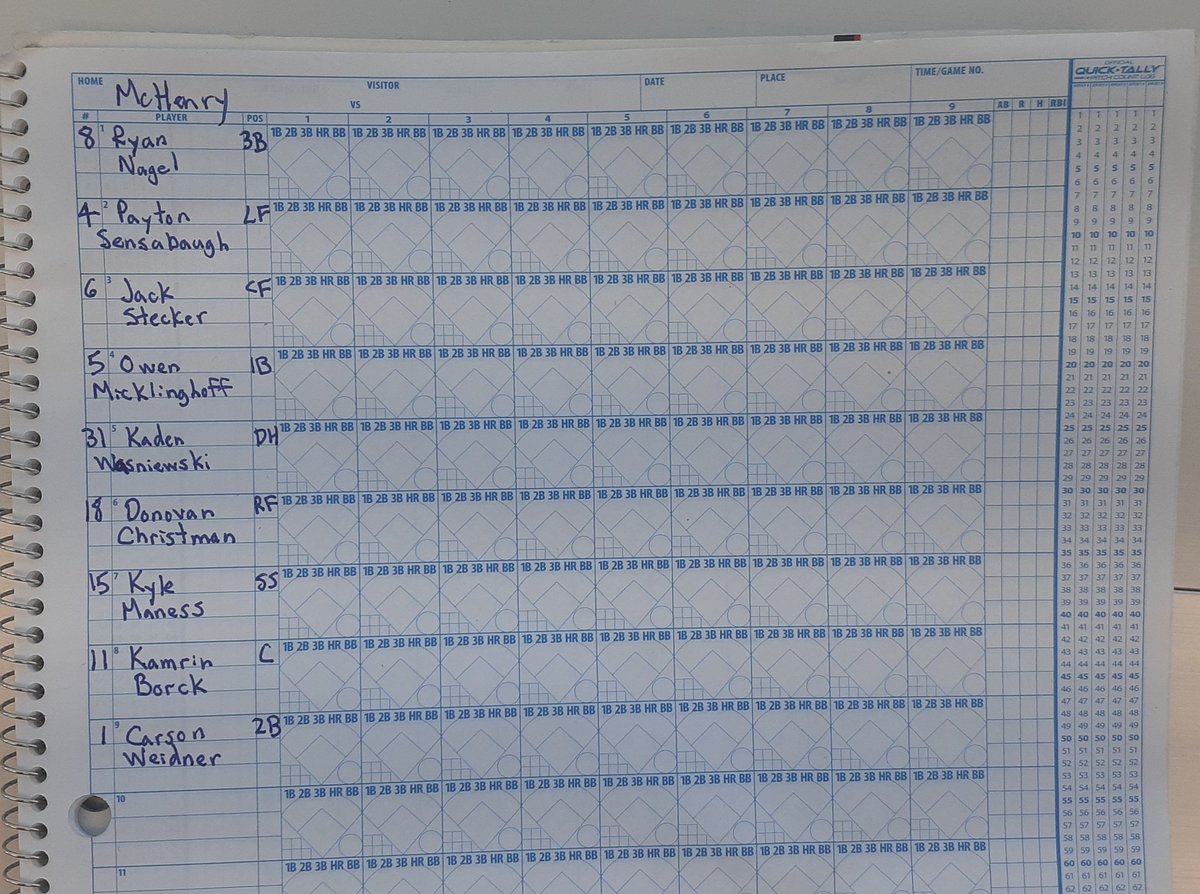 HOME McHenry VISITOR VS DATE PLACE TIME/GAME NO. OFFICIAL QUICK-TALLY PITCH COUNT LOG
# PLAYER POS 1 2 3 4 5 6 7 8 9 AB R H RBI
8 1 Ryan 3B 1B 2B 3B HR BB 1B 2B 3B HR BB 1B 2B 3B HR BB 1B 2B 3B HR BB 1B 2B 3B HR BB 1B 2B 3B HR BB 1B 2B 3B HR BB 1B 2B 3B HR BB 1B 2B 3B HR BB
Nagel
4 2 Payton LF 1B 2B 3B HR BB 1B 2B 3B HR BB 1B 2B 3B HR BB 1B 2B 3B HR BB 1B 2B 3B HR BB 1B 2B 3B HR BB 1B 2B 3B HR BB 1B 2B 3B HR BB 1B 2B 3B HR BB
Sensabaugh
6 3 Jack CF 1B 2B 3B HR BB 1B 2B 3B HR BB 1B 2B 3B HR BB 1B 2B 3B HR BB 1B 2B 3B HR BB 1B 2B 3B HR BB 1B 2B 3B HR BB 1B 2B 3B HR BB 1B 2B 3B HR BB
Stecker
5 4 Owen 1B 1B 2B 3B HR BB 1B 2B 3B HR BB 1B 2B 3B HR BB 1B 2B 3B HR BB 1B 2B 3B HR BB 1B 2B 3B HR BB 1B 2B 3B HR BB 1B 2B 3B HR BB 1B 2B 3B HR BB
Micklinghoff
31 5 Kaden DH 1B 2B 3B HR BB 1B 2B 3B HR BB 1B 2B 3B HR BB 1B 2B 3B HR BB 1B 2B 3B HR BB 1B 2B 3B HR BB 1B 2B 3B HR BB 1B 2B 3B HR BB 1B 2B 3B HR BB
Wasniewski
18 6 Donovan RF 1B 2B 3B HR BB 1B 2B 3B HR BB 1B 2B 3B HR BB 1B 2B 3B HR BB 1B 2B 3B HR BB 1B 2B 3B HR BB 1B 2B 3B HR BB 1B 2B 3B HR BB 1B 2B 3B HR BB
Christman
15 7 Kyle SS 1B 2B 3B HR BB 1B 2B 3B HR BB 1B 2B 3B HR BB 1B 2B 3B HR BB 1B 2B 3B HR BB 1B 2B 3B HR BB 1B 2B 3B HR BB 1B 2B 3B HR BB 1B 2B 3B HR BB
Maness
11 8 Kamrin C 1B 2B 3B HR BB 1B 2B 3B HR BB 1B 2B 3B HR BB 1B 2B 3B HR BB 1B 2B 3B HR BB 1B 2B 3B HR BB 1B 2B 3B HR BB 1B 2B 3B HR BB 1B 2B 3B HR BB
Borck
1 9 Carson 2B 1B 2B 3B HR BB 1B 2B 3B HR BB 1B 2B 3B HR BB 1B 2B 3B HR BB 1B 2B 3B HR BB 1B 2B 3B HR BB 1B 2B 3B HR BB 1B 2B 3B HR BB 1B 2B 3B HR BB
Weidner
10 1B 2B 3B HR BB 1B 2B 3B HR BB 1B 2B 3B HR BB 1B 2B 3B HR BB 1B 2B 3B HR BB 1B 2B 3B HR BB 1B 2B 3B HR BB 1B 2B 3B HR BB 1B 2B 3B HR BB
11 1B 2B 3B HR BB 1B 2B 3B HR BB 1B 2B 3B HR BB 1B 2B 3B HR BB 1B 2B 3B HR BB 1B 2B 3B HR BB 1B 2B 3B HR BB 1B 2B 3B HR BB 1B 2B 3B HR BB